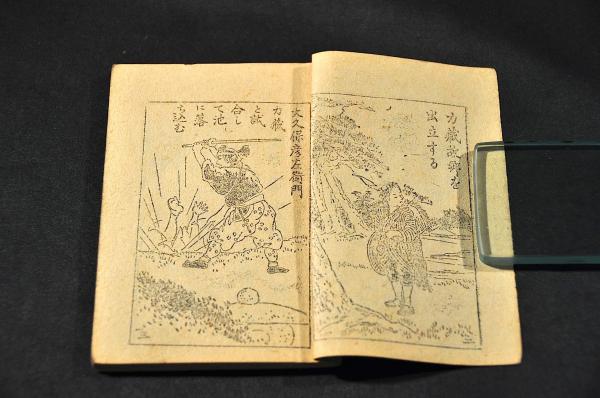 力蔵故郷を
出立する
大久保彦左衛門
力蔵
と試
合し
て池
に落
ち込む